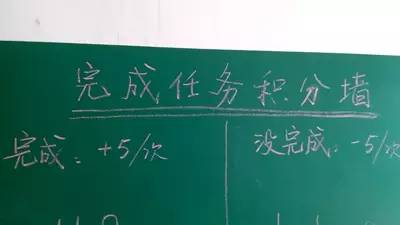 完成任务积分墙
完成：+5/次
没完成：-5/次